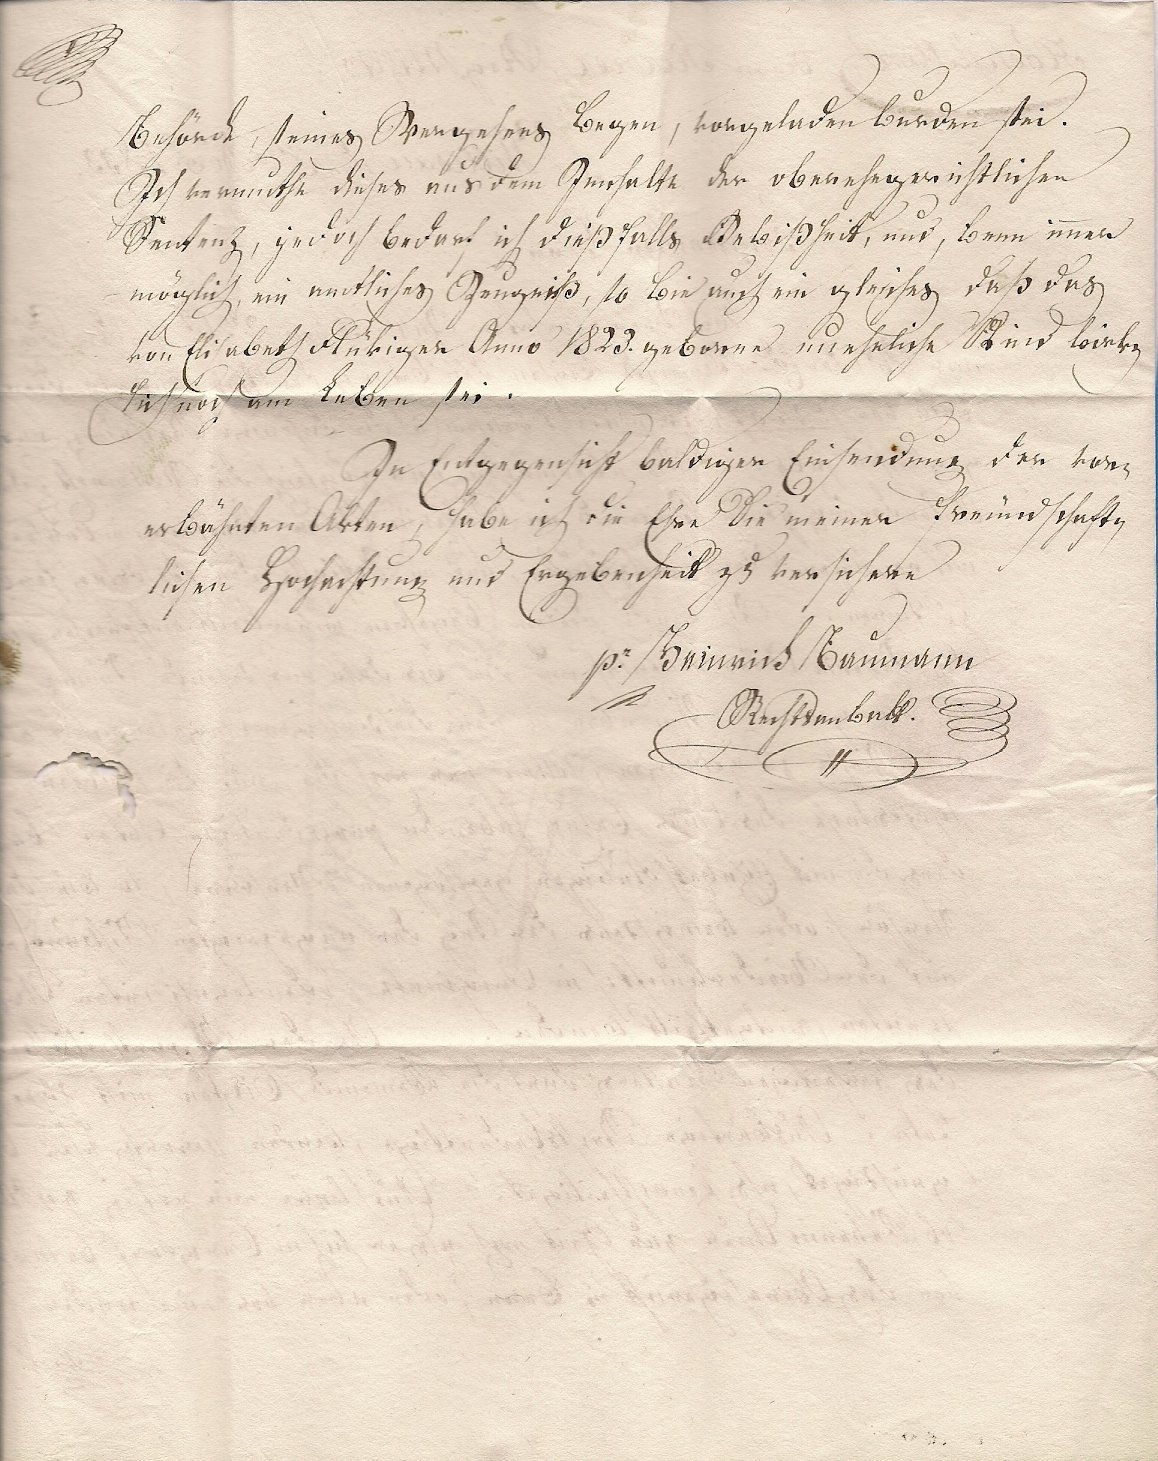 Behörde, seines Vergehens wegen, vorgeladen worden sei.
Ich vermuthe dieses aus dem Innhalte der oberehegerichtlichen
Sentenz, jedoch bedarf ich dießfalls Gewißheit, und, wenn immer
möglich, ein amtliches Zeugniß, so wie auch ein gleiches daß das
von Elisabeth Flükiger Anno 1823. geborene uneheliche Kind wirk-
lich noch am Leben sei.
In Entgegensicht baldiger Einsendung der vor-
erwähnten Akten, habe ich die Ehre Sie meiner freundschaft-
lichen Hochachtung und Ergebenheit zu versichern
pr Heinrich Baumann
Rechtsanwalt.